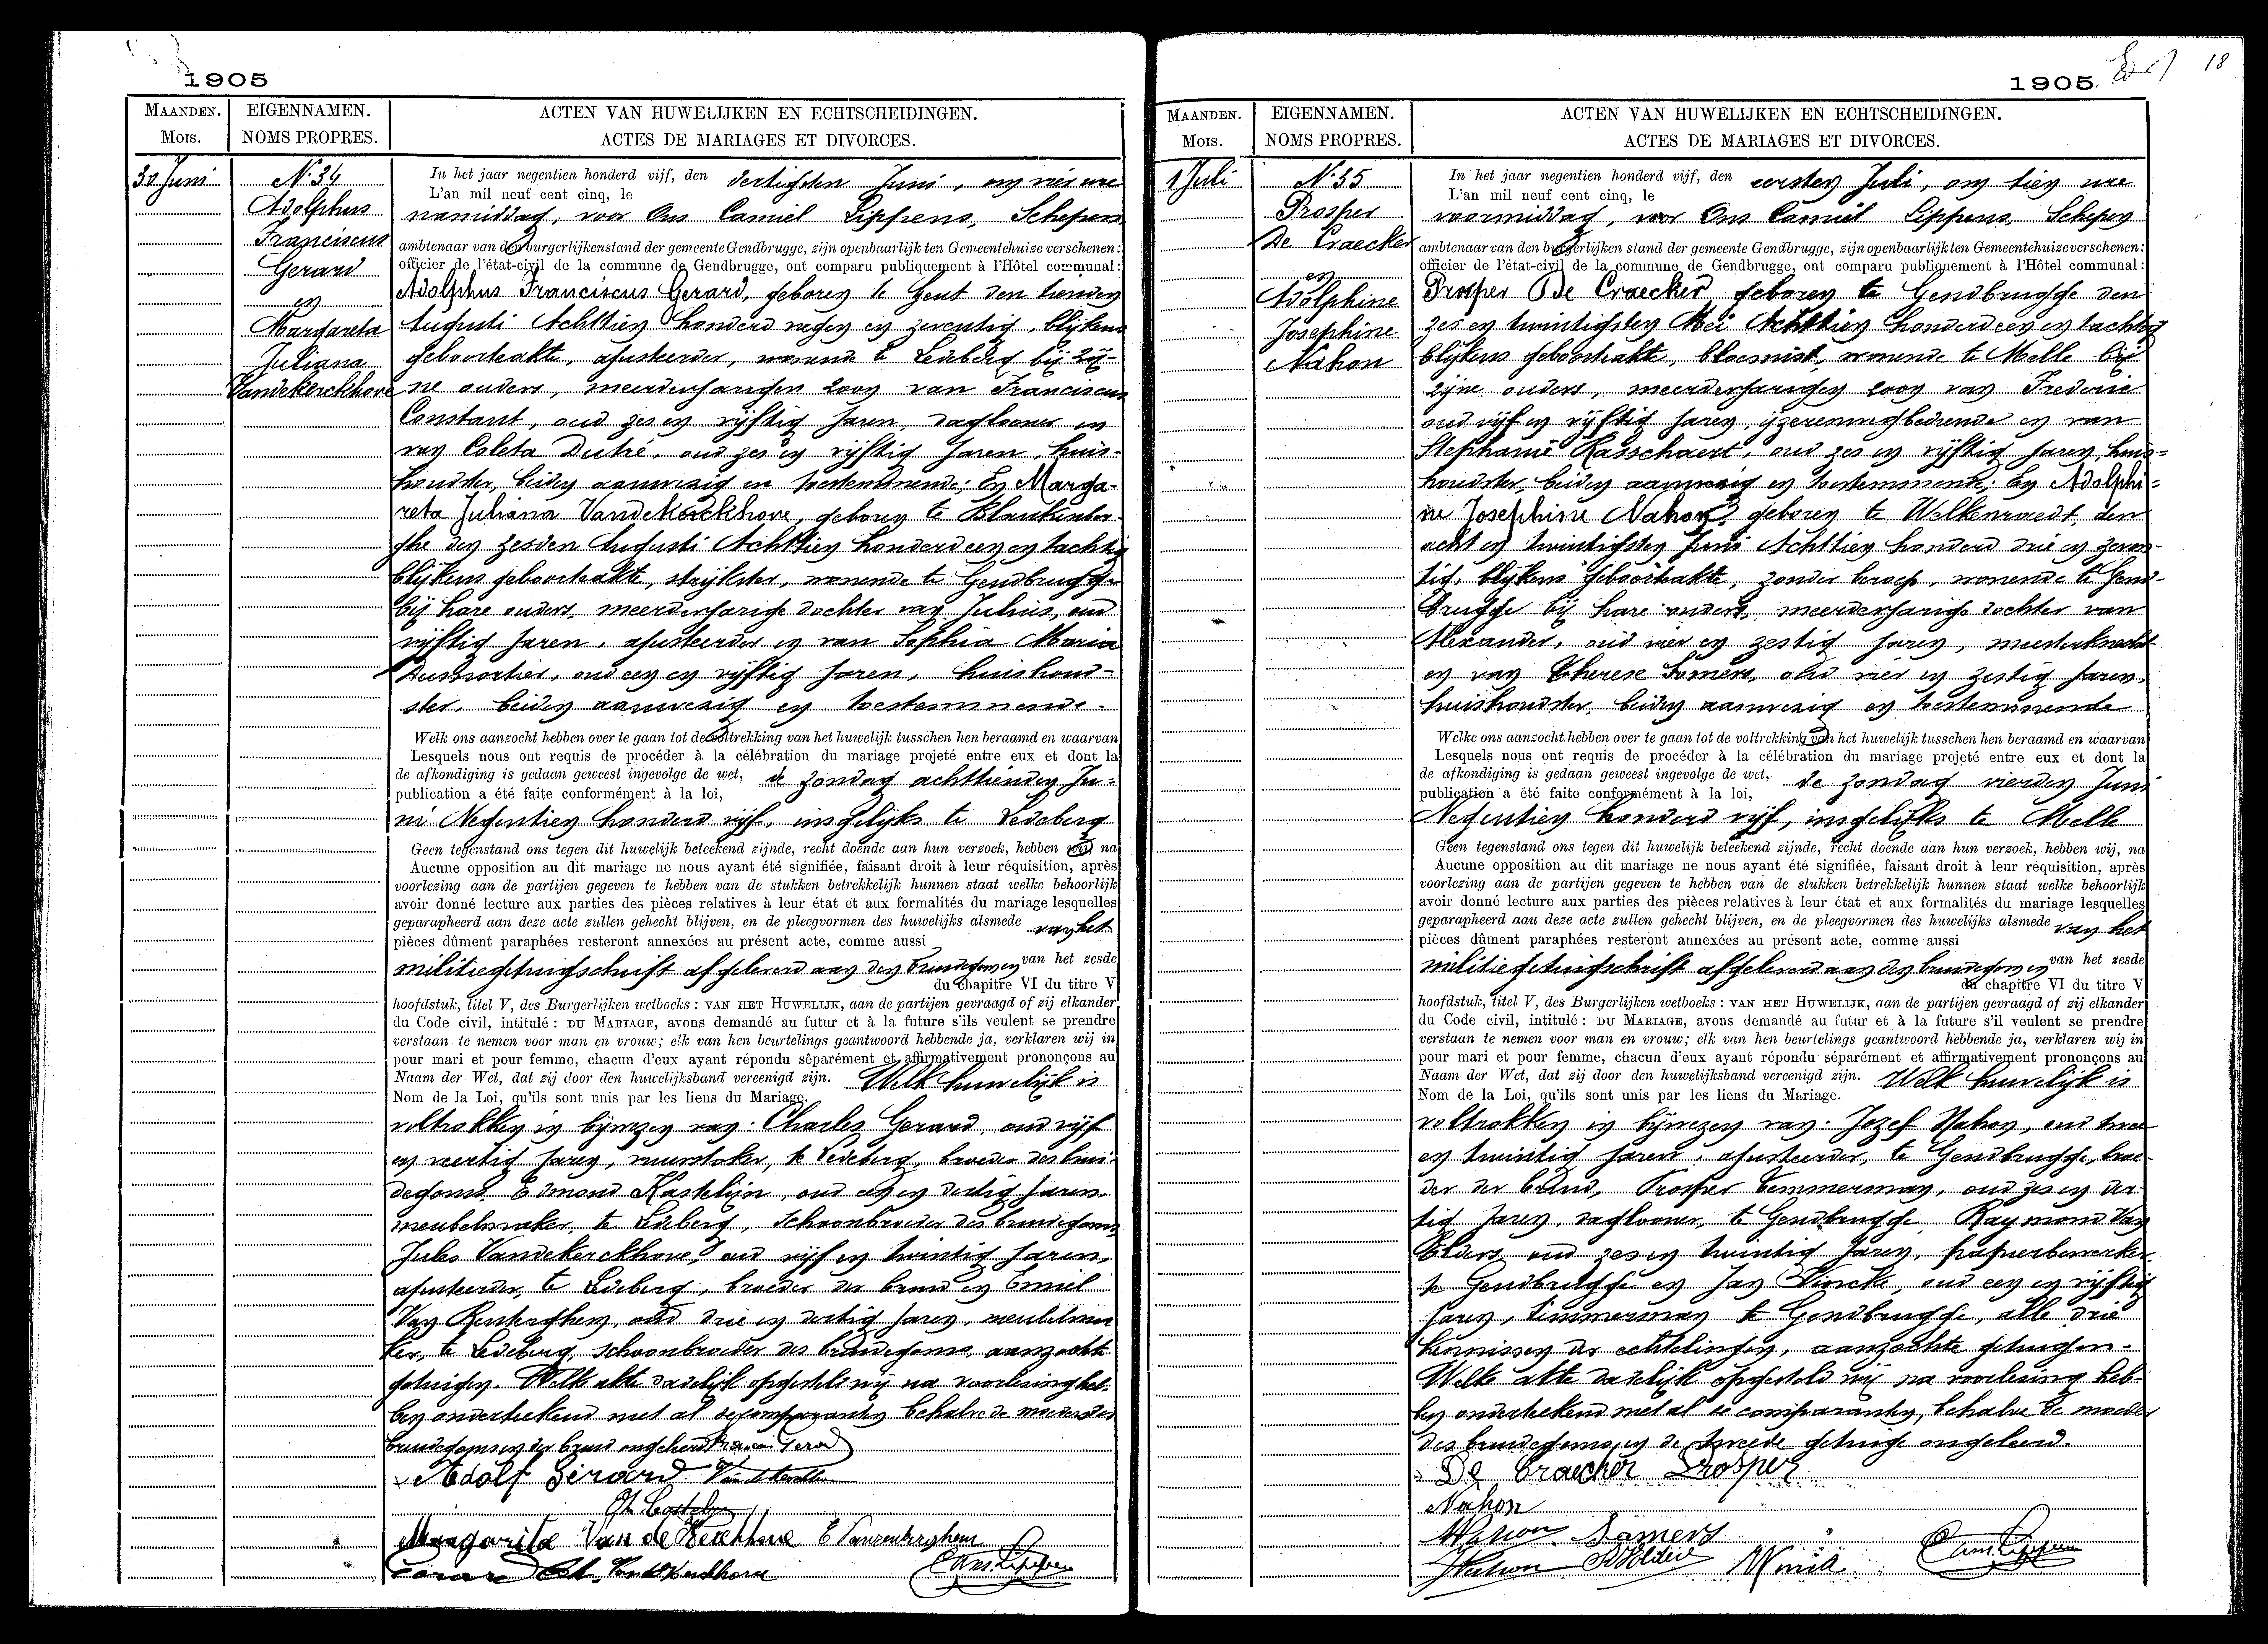 1905
MAANDEN. EIGENNAMEN. ACTEN VAN HUWELIJKEN EN ECHTSCHEIDINGEN.
MOIS. NOMS PROPRES. ACTES DE MARIAGES ET DIVORCES.
30 Juni
N. 34
Adolphus
Franciscus
Gerard
en
Margareta
Juliana
Vandekerckhove
In het jaar negentien honderd vijf, den dertigsten Juni, om vier ure
L'an mil neuf cent cinq, le
namiddag, voor Ons Camiel Lippens, Schepen
ambtenaar van den burgerlijkenstand der gemeente Gendbrugge, zijn openbaarlijk ten Gemeentehuize verschenen:
officier de l'état-civil de la commune de Gendbrugge, ont comparu publiquement à l'Hôtel communal:
Adolphus Franciscus Gerard, geboren te Gent den tienden
Augusti Achttien honderd negen en zeventig, blijkens
geboorteakte, ajusteerder, wonende te Ledeberg bij zij-
ne ouders, meerderjarigen zoon van Franciscus
Constant, oud zes en vijftig jaren, daglooner en
van Coleta Dutré, oud zes en vijftig jaren, huis-
houdster, beiden aanwezig en toestemmende; En Marga-
reta Juliana Vandekerckhove, geboren te Blankenber-
ghe den zesden Augusti Achttien honderd een en tachtig
blijkens geboorteakte, strijkster, wonende te Gendbrugge
bij hare ouders, meerderjarige dochter van Julius, oud
vijftig jaren, ajusteerder en van Sophia Maria
oud een en vijftig jaren, huishoud-
ster, beiden aanwezig en toestemmende.
Welk ons aanzocht hebben over te gaan tot de voltrekking van het huwelijk tusschen hen beraamd en waarvan
Lesquels nous ont requis de procéder à la célébration du mariage projeté entre eux et dont la
de afkondiging is gedaan geweest ingevolge de wet, de zondag achttienden Ju-
publication a été faite conformément à la loi,
ni Negentien honderd vijf, insgelijks te Ledeberg
Geen tegenstand ons tegen dit huwelijk beteekend zijnde, recht doende aan hun verzoek, hebben wij, na
Aucune opposition au dit mariage ne nous ayant été signifiée, faisant droit à leur réquisition, après
voorlezing aan de partijen gegeven te hebben van de stukken betrekkelijk hunnen staat welke behoorlijk
avoir donné lecture aux parties des pièces relatives à leur état et aux formalités du mariage lesquelles
geparapheerd aan deze acte zullen gehecht blijven, en de pleegvormen des huwelijks alsmede van het
pièces dûment paraphées resteront annexées au présent acte, comme aussi
militiegetuigschrift afgeleverd aan den bruidegom en van het zesde
du chapitre VI du titre V
hoofdstuk, titel V, des Burgerlijken wetboeks: VAN HET HUWELIJK, aan de partijen gevraagd of zij elkander
du Code civil, intitulé: DU MARIAGE, avons demandé au futur et à la future s'ils veulent se prendre
verstaan te nemen voor man en vrouw; elk van hen beurtelings geantwoord hebbende ja, verklaren wij in
pour mari et pour femme, chacun d'eux ayant répondu séparément et affirmativement prononçons au
Naam der Wet, dat zij door den huwelijksband vereenigd zijn. Welk huwelijk is
Nom de la Loi, qu'ils sont unis par les liens du Mariage.
voltrokken in bijwezen van: Charles Gerard, oud vijf
en veertig jaren, vuurstoker, te Ledeberg, broeder des brui-
degoms, Edmond Kastelijn, oud een en dertig jaren
meubelmaker, te Ledeberg, schoonbroeder des bruidegoms
Jules Vandekerckhove, oud vijf en twintig jaren,
ajusteerder, te Ledeberg, broeder der bruid en Emiel
Van Renterghem, oud drie en dertig jaren, meubelma-
ker, te Ledeberg, schoonbroeder des bruidegoms, aanzochte
getuigen. Welke akte dadelijk opgesteld wij na voorlezing heb-
ben onderteekend met al de comparanten behalve de moeders des
bruidegoms en der bruid ongeleerd
Adolf Gérard
Margarita Van de Kerckhove
1905.
18
MAANDEN. EIGENNAMEN. ACTEN VAN HUWELIJKEN EN ECHTSCHEIDINGEN.
MOIS. NOMS PROPRES. ACTES DE MARIAGES ET DIVORCES.
1 Juli
N. 35
Prosper
De Craecker
en
Adolphine
Josephine
Nahon
In het jaar negentien honderd vijf, den eersten Juli, om tien ure
L'an mil neuf cent cinq, le
voormiddag, voor Ons Camiel Lippens, Schepen
ambtenaar van den burgerlijken stand der gemeente Gendbrugge, zijn openbaarlijk ten Gemeentehuize verschenen:
officier de l'état-civil de la commune de Gendbrugge, ont comparu publiquement à l'Hôtel communal:
Prosper De Craecker geboren te Gendbrugge den
zes en twintigsten Mei Achttien honderd een en tachtig
blijkens geboorteakte, bloemist, wonende te Melle bij
zijne ouders, meerderjarigen zoon van Frederic
oud vijf en vijftig jaren, ijzerenwegbediende en van
Stephanie Rasschaert, oud zes en vijftig jaren, huis-
houdster, beiden aanwezig en toestemmende; En Adolphi-
ne Josephine Nahon, geboren te Welkenraedt, den
acht en twintigsten Juni Achttien honderd drie en zeven-
tig, blijkens geboorteakte, zonder beroep, wonende te Gend-
brugge bij hare ouders, meerderjarige dochter van
Alexander, oud vier en zestig jaren, meesterknecht
en van Therese Somers, oud vier en zestig jaren,
huishoudster, beiden aanwezig en toestemmende
Welke ons aanzocht hebben over te gaan tot de voltrekking van het huwelijk tusschen hen beraamd en waarvan
Lesquels nous ont requis de procéder à la célébration du mariage projeté entre eux et dont la
de afkondiging is gedaan geweest ingevolge de wet, de zondag vierden Juni
publication a été faite conformément à la loi,
Negentien honderd vijf, insgelijks te Melle
Geen tegenstand ons tegen dit huwelijk beteekend zijnde, recht doende aan hun verzoek, hebben wij, na
Aucune opposition au dit mariage ne nous ayant été signifiée, faisant droit à leur réquisition, après
voorlezing aan de partijen gegeven te hebben van de stukken betrekkelijk hunnen staat welke behoorlijk
avoir donné lecture aux parties des pièces relatives à leur état et aux formalités du mariage lesquelles
geparapheerd aan deze acte zullen gehecht blijven, en de pleegvormen des huwelijks alsmede van het
pièces dûment paraphées resteront annexées au présent acte, comme aussi
militiegetuigschrift afgeleverd aan den bruidegom en van het zesde
du chapitre VI du titre V
hoofdstuk, titel V, des Burgerlijken wetboeks: VAN HET HUWELIJK, aan de partijen gevraagd of zij elkander
du Code civil, intitulé: DU MARIAGE, avons demandé au futur et à la future s'il veulent se prendre
verstaan te nemen voor man en vrouw; elk van hen beurtelings geantwoord hebbende ja, verklaren wij in
pour mari et pour femme, chacun d'eux ayant répondu séparément et affirmativement prononçons au
Naam der Wet, dat zij door den huwelijksband vereenigd zijn. Welk huwelijk is
Nom de la Loi, qu'ils sont unis par les liens du Mariage.
voltrokken in bijwezen van: Jozef Nahon, oud twee
en twintig jaren, ajusteerder, te Gendbrugge, broe-
der der bruid, Prosper Temmerman, oud zes en der-
tig jaren, daglooner, te Gendbrugge, Raymond Van
oud zes en twintig jaren, papierbewerker
te Gendbrugge en Jan Vincke, oud een en vijftig
jaren, timmerman te Gendbrugge, alle drie
kennissen der echtelingen, aanzochte getuigen.
Welke akte dadelijk opgesteld wij na voorlezing heb-
ben onderteekend met al de comparanten, behalve de moeder
des bruidegoms, en de tweede getuige ongeleerd.
De Craecker Prosper
Nahon
Nahon Somers